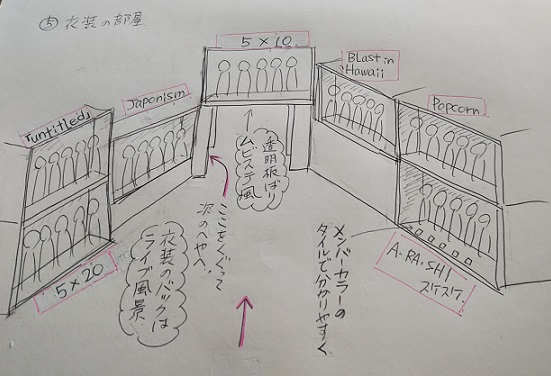 ⑤ 衣装の部屋
5×10
「untitled」
Japonism
Blast in
Hawaii
Popcorn
透明板ばり
ムビステ風
ここをくぐって
次のへやへ!
衣装のバックは
ライブ風景
メンバーカラーの
タイルで分かりやすく
5×20
A・RA・SHI
スケスケ